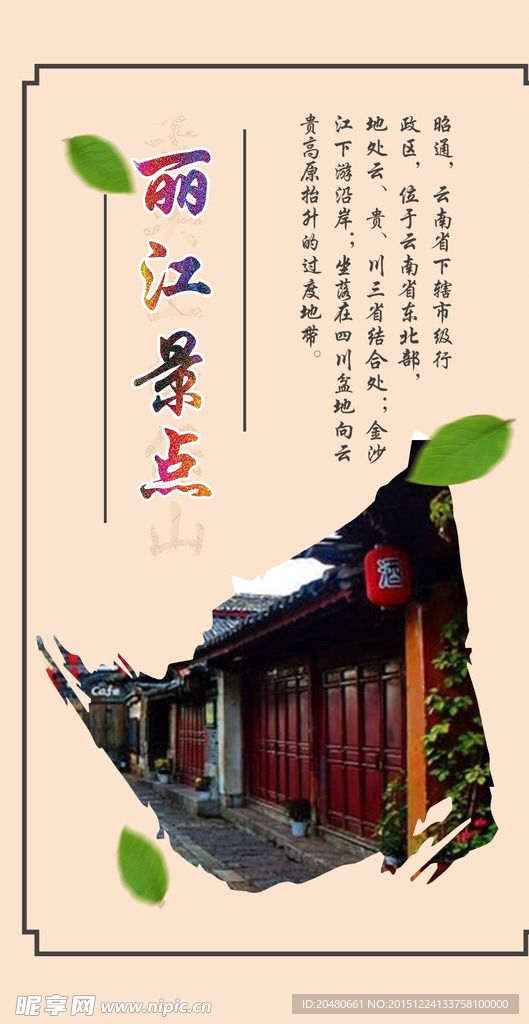 昭通，云南省下辖市级行
政区，位于云南省东北部，
地处云、贵、川三省结合处；金沙
江下游沿岸；坐落在四川盆地向云
贵高原抬升的过度地带。
丽江景点
山
酒
Cafe
昵享网 www.nipic.cn
ID:20480661 NO:20151224133758100000